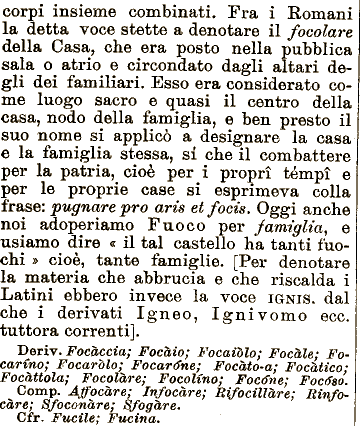 corpi insieme combinati. Fra i Romani
la detta voce stette a denotare il focolare
della Casa, che era posto nella pubblica
sala o atrio e circondato dagli altari de-
gli dei familiari. Esso era considerato co-
me luogo sacro e quasi il centro della
casa, nodo della famiglia, e ben presto il
suo nome si applicò a designare la casa
e la famiglia stessa, sì che il combattere
per la patria, cioè per i proprî témpî e
per le proprie case si esprimeva colla
frase: pugnare pro aris et focis. Oggi anche
noi adoperiamo Fuoco per famiglia, e
usiamo dire « il tal castello ha tanti fuo-
chi » cioè, tante famiglie. [Per denotare
la materia che abbrucia e che riscalda i
Latini ebbero invece la voce IGNIS. dal
che i derivati Igneo, Ignivomo ecc.
tuttora correnti].
Deriv. Focàccia; Focàio; Focaiòlo; Focàle; Fo-
carìno; Focaròlo; Focaróne; Focàto-a; Focàtico;
Focàttola; Focolàre; Focolìno; Focóne; Focóso.
Comp. Affocàre; Infocàre; Rifocillàre; Rinfo-
càre; Sfoconàre; Sfogàre.
Cfr. Fucile; Fucina.